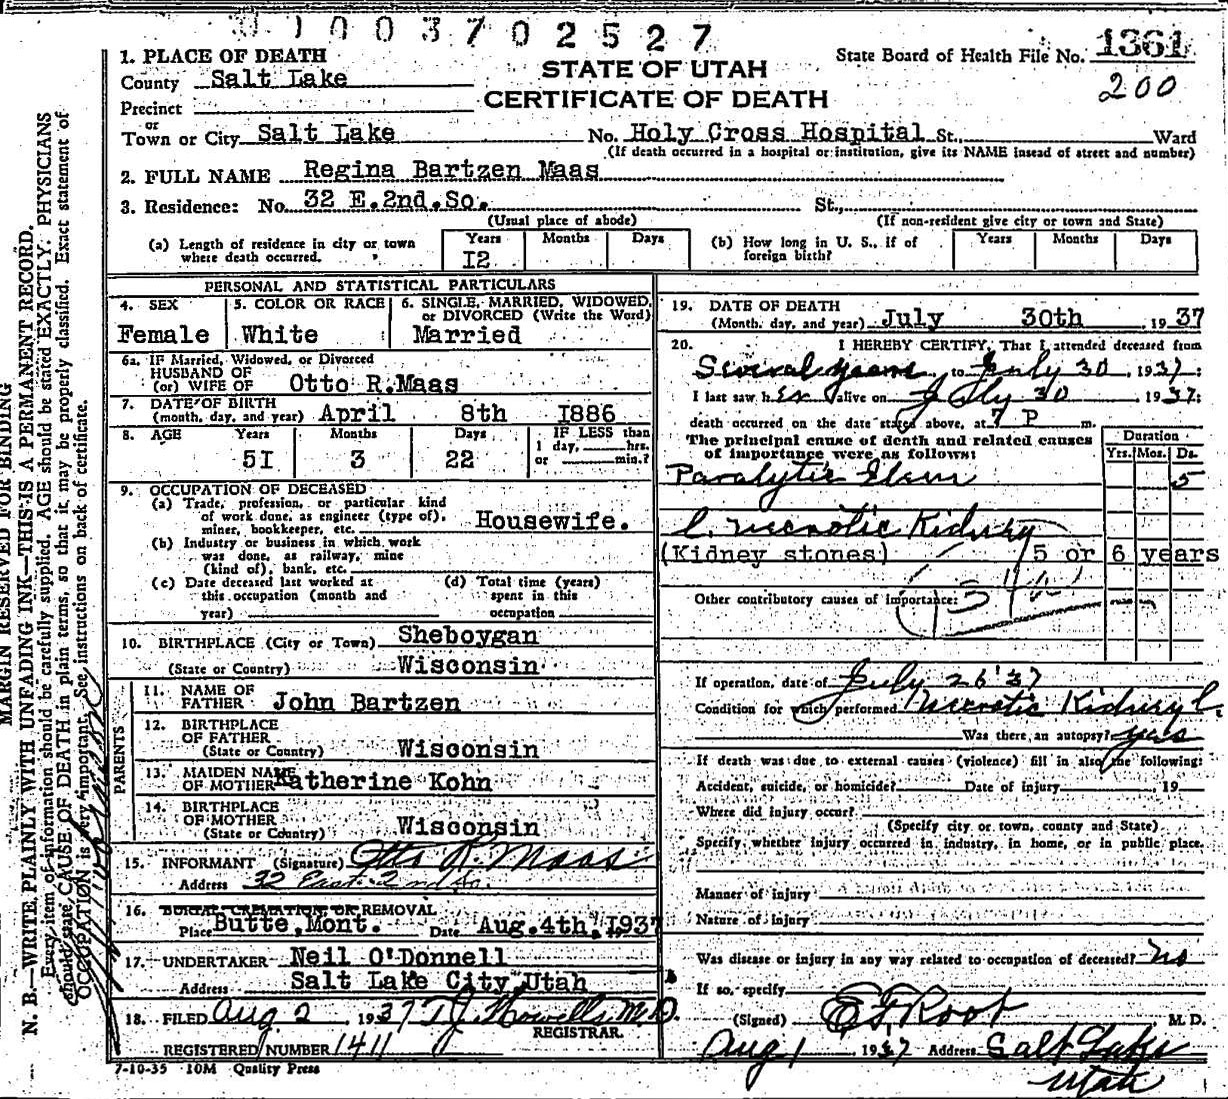 0 1 0 0 3 7 0 2 5 2 7
STATE OF UTAH
CERTIFICATE OF DEATH
State Board of Health File No. 1361
200
1. PLACE OF DEATH
County Salt Lake
Precinct
or
Town or City Salt Lake No. Holy Cross Hospital St., Ward
(If death occurred in a hospital or institution, give its NAME insead of street and number)
2. FULL NAME Regina Bartzen Maas
3. Residence: No. 32 E.2nd.So. St.,
(Usual place of abode) (If non-resident give city or town and State)
(a) Length of residence in city or town where death occurred. Years I2 Months Days (b) How long in U. S., if of foreign birth? Years Months Days
PERSONAL AND STATISTICAL PARTICULARS
4. SEX Female
5. COLOR OR RACE White
6. SINGLE, MARRIED, WIDOWED, or DIVORCED (Write the Word) Married
6a. IF Married, Widowed, or Divorced
HUSBAND OF
(or) WIFE OF Otto R.Maas
7. DATE OF BIRTH
(month, day, and year) April 8th I886
8. AGE Years 5I Months 3 Days 22 IF LESS than
1 day, hrs.
or min.?
9. OCCUPATION OF DECEASED
(a) Trade, profession, or particular kind
of work done, as engineer (type of),
miner, bookkeeper, etc. Housewife.
(b) Industry or business in which work
was done, as railway, mine
(kind of), bank, etc.
(c) Date deceased last worked at
this occupation (month and
year)
(d) Total time (years)
spent in this
occupation
10. BIRTHPLACE (City or Town) Sheboygan
(State or Country) Wisconsin
PARENTS
11. NAME OF
FATHER John Bartzen
12. BIRTHPLACE
OF FATHER
(State or Country) Wisconsin
13. MAIDEN NAME
OF MOTHER Katherine Kohn
14. BIRTHPLACE
OF MOTHER
(State or Country) Wisconsin
15. INFORMANT (Signature) Otto R. Maas
Address 32 East 2nd So.
16. BURIAL, CREMATION, OR REMOVAL
Place Butte, Mont. Date Aug.4th, 1937
17. UNDERTAKER Neil O'Donnell
Address Salt Lake City, Utah
18. FILED Aug 2 1937 T.J. Howells M.D.
REGISTRAR.
REGISTERED NUMBER 1411
7-10-35 10M Quality Press
19. DATE OF DEATH
(Month, day, and year) July 30th, 1937
20. I HEREBY CERTIFY, That I attended deceased from
Several years to July 30, 1937;
I last saw her alive on July 30, 1937;
death occurred on the date stated above, at 7 P m.
The principal cause of death and related causes
of importance were as follows:
Duration
Yrs. Mos. Ds.
Paralytic Ileus 5
L. Necrotic Kidney
(Kidney stones) 5 or 6 years
Other contributory causes of importance:
If operation, date of July 26 '37
Condition for which performed Necrotic Kidney L.
Was there an autopsy? yes
If death was due to external causes (violence) fill in also the following:
Accident, suicide, or homicide? Date of injury , 19
Where did injury occur?
(Specify city or town, county and State)
Specify whether injury occurred in industry, in home, or in public place.
Manner of injury
Nature of injury
Was disease or injury in any way related to occupation of deceased? no
If so, specify
(Signed) E F Root M. D.
Aug 1 1937 Address Salt Lake
Utah
MARGIN RESERVED FOR BINDING
N. B.—WRITE PLAINLY WITH UNFADING INK—THIS IS A PERMANENT RECORD.
Every item of information should be carefully supplied. AGE should be stated EXACTLY. PHYSICIANS
should state CAUSE OF DEATH in plain terms, so that it may be properly classified. Exact statement of
OCCUPATION is very important. See instructions on back of certificate.